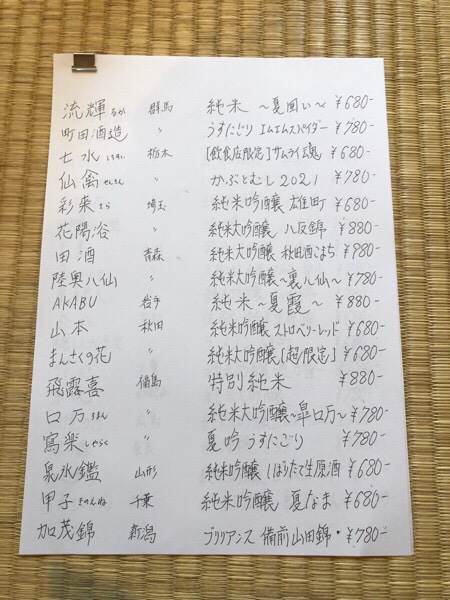 流輝 るか 群馬 純米 〜夏囲い〜 ¥680-
町田酒造 〃 うすにごり エムエムスパイダー ¥780-
七水 しちすい 栃木 [飲食店限定]サムライ魂 ¥680-
仙禽 せんきん 〃 かぶとむし2021 ¥780-
彩來 さら 埼玉 純米吟醸 雄町 ¥680-
花陽浴 〃 純米大吟醸 八反錦 ¥880-
田酒 青森 純米大吟醸 秋田酒こまち ¥980-
陸奥八仙 〃 純米大吟醸〜裏八仙〜 ¥780-
AKABU 岩手 純米〜夏霞〜 ¥880-
山本 秋田 純米吟醸 ストロベリーレッド ¥680-
まんさくの花 〃 純米大吟醸[超限定] ¥680-
飛露喜 福島 特別純米 ¥880-
口万 ろまん 〃 純米大吟醸〜皐口万〜 ¥780-
寫楽 しゃらく 〃 夏吟うすにごり ¥780-
泉氷鑑 山形 純米吟醸 しぼりたて生原酒 ¥680-
甲子 きのえね 千葉 純米吟醸 夏なま ¥680-
加茂錦 新潟 ブリリアンス 備前山田錦・¥780-